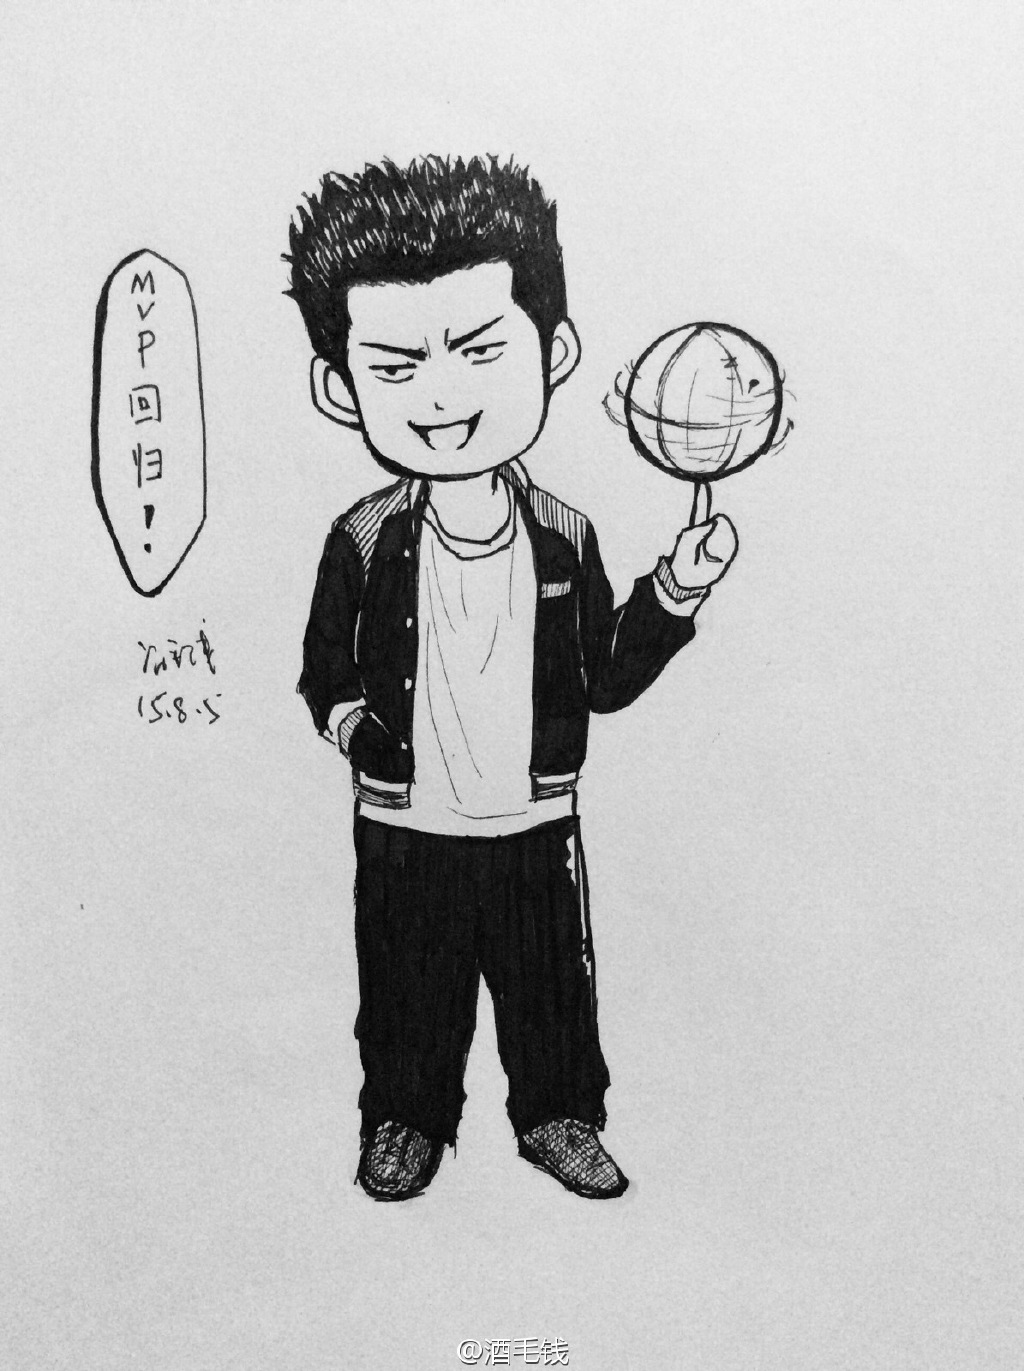 MVP回归！
15.8.5
@酒毛钱